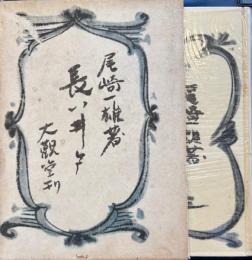 尾崎一雄著
長い井戸
大觀堂刊
尾崎一雄著